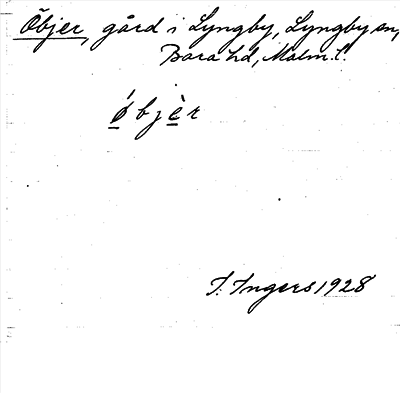 Öbjer, gård i Lyngby, Lyngby sn,
Bara hd, Malm. l.
ǿbjèr
I. Ingers 1928